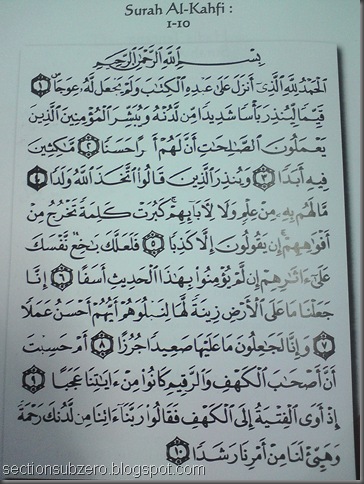 Surah Al-Kahfi :
1-10
بِسْمِ اللَّهِ الرَّحْمَٰنِ الرَّحِيمِ
الْحَمْدُ لِلَّهِ الَّذِي أَنزَلَ عَلَىٰ عَبْدِهِ الْكِتَٰبَ وَلَمْ يَجْعَل لَّهُ عِوَجَا ۜ ﴿١﴾
قَيِّمًا لِّيُنذِرَ بَأْسًا شَدِيدًا مِّن لَّدُنْهُ وَيُبَشِّرَ الْمُؤْمِنِينَ الَّذِينَ
يَعْمَلُونَ الصَّٰلِحَٰتِ أَنَّ لَهُمْ أَجْرًا حَسَنًا ﴿٢﴾ مَّٰكِثِينَ
فِيهِ أَبَدًا ﴿٣﴾ وَيُنذِرَ الَّذِينَ قَالُوا اتَّخَذَ اللَّهُ وَلَدًا ﴿٤﴾
مَّا لَهُم بِهِ مِنْ عِلْمٍ وَلَا لِآبَائِهِمْ ۚ كَبُرَتْ كَلِمَةً تَخْرُجُ مِنْ
أَفْوَٰهِهِمْ ۚ إِن يَقُولُونَ إِلَّا كَذِبًا ﴿٥﴾ فَلَعَلَّكَ بَٰخِعٌ نَّفْسَكَ
عَلَىٰ ءَاثَٰرِهِمْ إِن لَّمْ يُؤْمِنُوا بِهَٰذَا الْحَدِيثِ أَسَفًا ﴿٦﴾ إِنَّا
جَعَلْنَا مَا عَلَى الْأَرْضِ زِينَةً لَّهَا لِنَبْلُوَهُمْ أَيُّهُمْ أَحْسَنُ عَمَلًا
﴿٧﴾ وَإِنَّا لَجَٰعِلُونَ مَا عَلَيْهَا صَعِيدًا جُرُزًا ﴿٨﴾ أَمْ حَسِبْتَ
أَنَّ أَصْحَٰبَ الْكَهْفِ وَالرَّقِيمِ كَانُوا مِنْ ءَايَٰتِنَا عَجَبًا ﴿٩﴾
إِذْ أَوَى الْفِتْيَةُ إِلَى الْكَهْفِ فَقَالُوا رَبَّنَا ءَاتِنَا مِن لَّدُنكَ رَحْمَةً
وَهَيِّئْ لَنَا مِنْ أَمْرِنَا رَشَدًا ﴿١٠﴾
sectionsubzero.blogspot.com